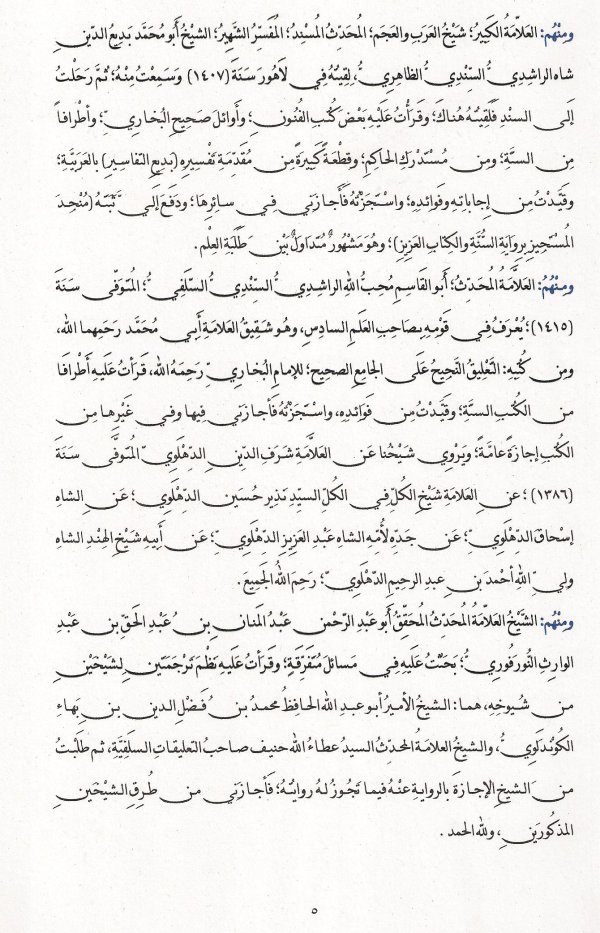 ومِنْهُم: العَلَّامَةُ الكَبِيرُ؛ شَيْخُ العَرَبِ والعَجَمِ؛ المُحَدِّثُ المُسْنِدُ؛ المُفَسِّرُ الشَّهِيرُ؛ الشَّيْخُ أبُو مُحَمَّد بَدِيعُ الدِّيْنِ
شاه الراشِدِيُّ السِّنْدِيُّ الظاهِرِيُّ، لَقِيتُهُ فِي لاهُورَ سَنَةَ (١٤٠٧) وَسَمِعْتُ مِنْهُ؛ ثُمَّ رَحَلْتُ
إلَى السِّنْدِ فَلَقِيتُهُ هُنَاكَ؛ وقَرَأْتُ عَلَيْهِ بَعْضَ كُتُبِ الفُنُونِ؛ وأَوائِلَ صَحِيحِ البُخَارِيِّ؛ وأطْرافًا
مِن السِّتَّةِ؛ ومِن مُسْتَدْرَكِ الحَاكِمِ؛ وقِطْعَةً كَبِيرَةً مِن مُقَدِّمَةِ تَفْسِيرِهِ (بَدِيعِ التَفَاسِيرِ) بالعَرَبِيَّةِ؛
وقَيَّدْتُ مِن إجَابَاتِهِ وفَوَائِدِهِ؛ واسْتَجَزْتُهُ فَأَجَازَنِي فِي سَائِرِهَا؛ ودَفَعَ إلَي ثَبَتَهُ (مُنْجِدَ
المُسْتَجِيزِ بِرِوَايَةِ السُّنَّةِ والكِتَابِ العَزِيزِ)؛ وهُوَ مَشْهُورٌ مُتَدَاوَلٌ بَيْنَ طَلَبَةِ العِلْمِ.
ومِنْهُمُ: العَلَّامَةُ المُحَدِّثُ؛ أبُو القَاسِمِ مُحِبُّ اللهِ الراشِدِيُّ السِّنْدِيُّ السَّلَفِيُّ؛ المُتَوَفَّى سَنَةَ
(١٤١٥)؛ يُعْرَفُ فِي قَوْمِهِ بِصَاحِبِ العَلَمِ السادِسِ، وهُو شَقِيقُ العَلامَةِ أبِي مُحَمَّد رَحِمَهما الله،
ومِن كُتُبِهِ: التَّعْلِيقُ النَّجِيحُ عَلَى الجَامِعِ الصَحِيحِ؛ للإمامِ البُخارِيِّ رَحِمَهُ الله، قَرَأْتُ عَلَيْهِ أَطْرافَا
مِن الكُتُبِ السِتَّةِ؛ وقَيَّدْتُ مِن فَوَائِدِهِ، واسْتَجَزْتُهُ فَأَجَازَنِي فِيها وفِي غَيْرِها مِن
الكُتُبِ إجازَةً عامَّةً؛ ويَرْوِي شَيْخُنا عَن العَلَّامَةِ شَرَفِ الدِّينِ الدِّهْلَوِيِّ المُتَوَفَّى سَنَةَ
(١٣٨٦)؛ عن العَلامَةِ شَيْخِ الكُلِّ فِي الكُلِّ السيِّدِ نَذِير حُسَيْن الدِّهْلَوِيِّ؛ عَنِ الشاهِ
إسْحَاقَ الدِّهْلَوِيِّ؛ عَن جَدِّهِ لأُمِّهِ الشاهِ عَبْدِ العَزِيزِ الدِّهْلَوِيِّ؛ عَن أَبِيهِ شَيْخِ الهِنْدِ الشاهِ
ولِيِّ اللهِ أحْمَدَ بَنِ عبدِ الرحِيمِ الدِّهْلَوِيِّ؛ رَحِمَ اللهُ الجَمِيعَ.
ومِنْهُم: الشَّيْخُ العَلّامَةُ المُحَدِّثُ المُحَقِّقُ أبُو عَبْدِ الرَّحْمنِ عَبْدُ المَنَانِ بنُ عَبْدِ الحَقِّ بنِ عَبْدِ
الوارِثِ النُّورفُورِيُّ؛ بَحَثْتُ عَلَيْهِ فِي مَسَائِلَ مُتَفَرِّقَةٍ؛ وقَرَأتُ عَلَيْهِ نَظْمَ تَرْجَمَتَينِ لِشَيْخَيْنِ
مِن شُيوخِهِ، هما: الشيخُ الأمِيرُ أبو عبدِ الله الحافِظُ مُحمدُ بنُ فَضْلِ الدينِ بنِ بَهاءِ
الكُونْدَلَوِيُّ، والشيخُ العلامَةُ المحدِّثُ السيدُ عطاءُ الله حنيف صاحبُ التعليقاتِ السلَفِيَّةِ، ثم طَلَبْتُ
مِنَ الشيخِ الإجازَةَ بالروايةِ عنْهُ فيما تَجُوزُ لهُ روايتُهُ؛ فأجازَنِي مِن طُرقِ الشيْخَينِ
المذكُورَينِ، ولله الحمد.
٥